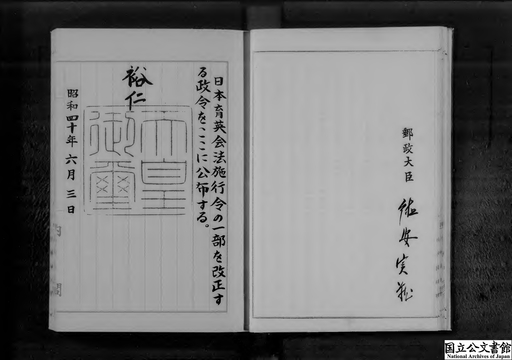 郵政大臣
徳安実蔵
日本育英会法施行令の一部を改正す
る政令をここに公布する。
裕仁
天皇
御璽
昭和四十年六月三日
国立公文書館
National Archives of Japan